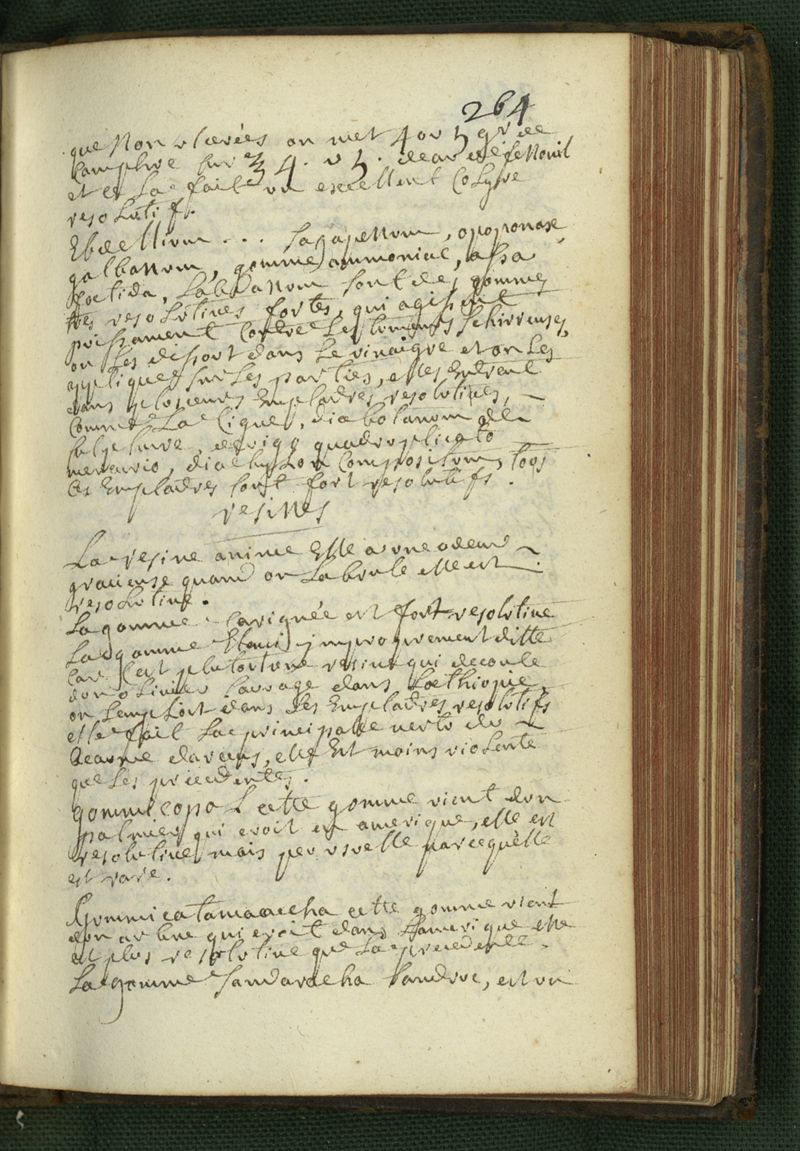 264
que Non vlcerées on met 4 ou 5 gr de
Camphre sur ℥ 4. ou 5. deau de feNouil
et cela fait vn excellent Colyre
resolutif.
Bdellium ... SagapeNum, opoponax,
galbaNum, gomme ammoniac, assa
foetida, LabdaNum sont des gommes
tres resolutives fortes, qui agissent
puissament contre les tumeurs schirreuses,
on les dissout dans le vinaigre et on les
applique sur les parties, elles entrent
dans plusieurs Empladres resolutives,
comme La Cigue, diabotanum de
de vigo quadruplicato
mercurio, diachylon compositum, tous
les Empladres sont fort resolutifs.
resiNes
La resine anime Elle a vne odeur
gracieuse quand on La brule elle est
resolutive.
La gomme Caragnée est fort resolutive
La gomme Elemi improprement ditte
Car Cest plutot vne resine qui decoule
dun olivier sauvage dans Loethiopie
on Lemploit dans des Empladres resolutifs
elle fait La principale vertu du
beaume darceus, elle Est moins violente
que Les precedentes.
gomme copal cette gomme vient dun
palmier qui croit en amerique, elle est
resolutive mais peu vsuelle parcequelle
est rare.
Gommi catamaaccha cette gomme vient
dun arbre qui croit dans Lamerique elle
est plus resolutive que La precedente.
La gomme Sandaracha Sandrac, est vn